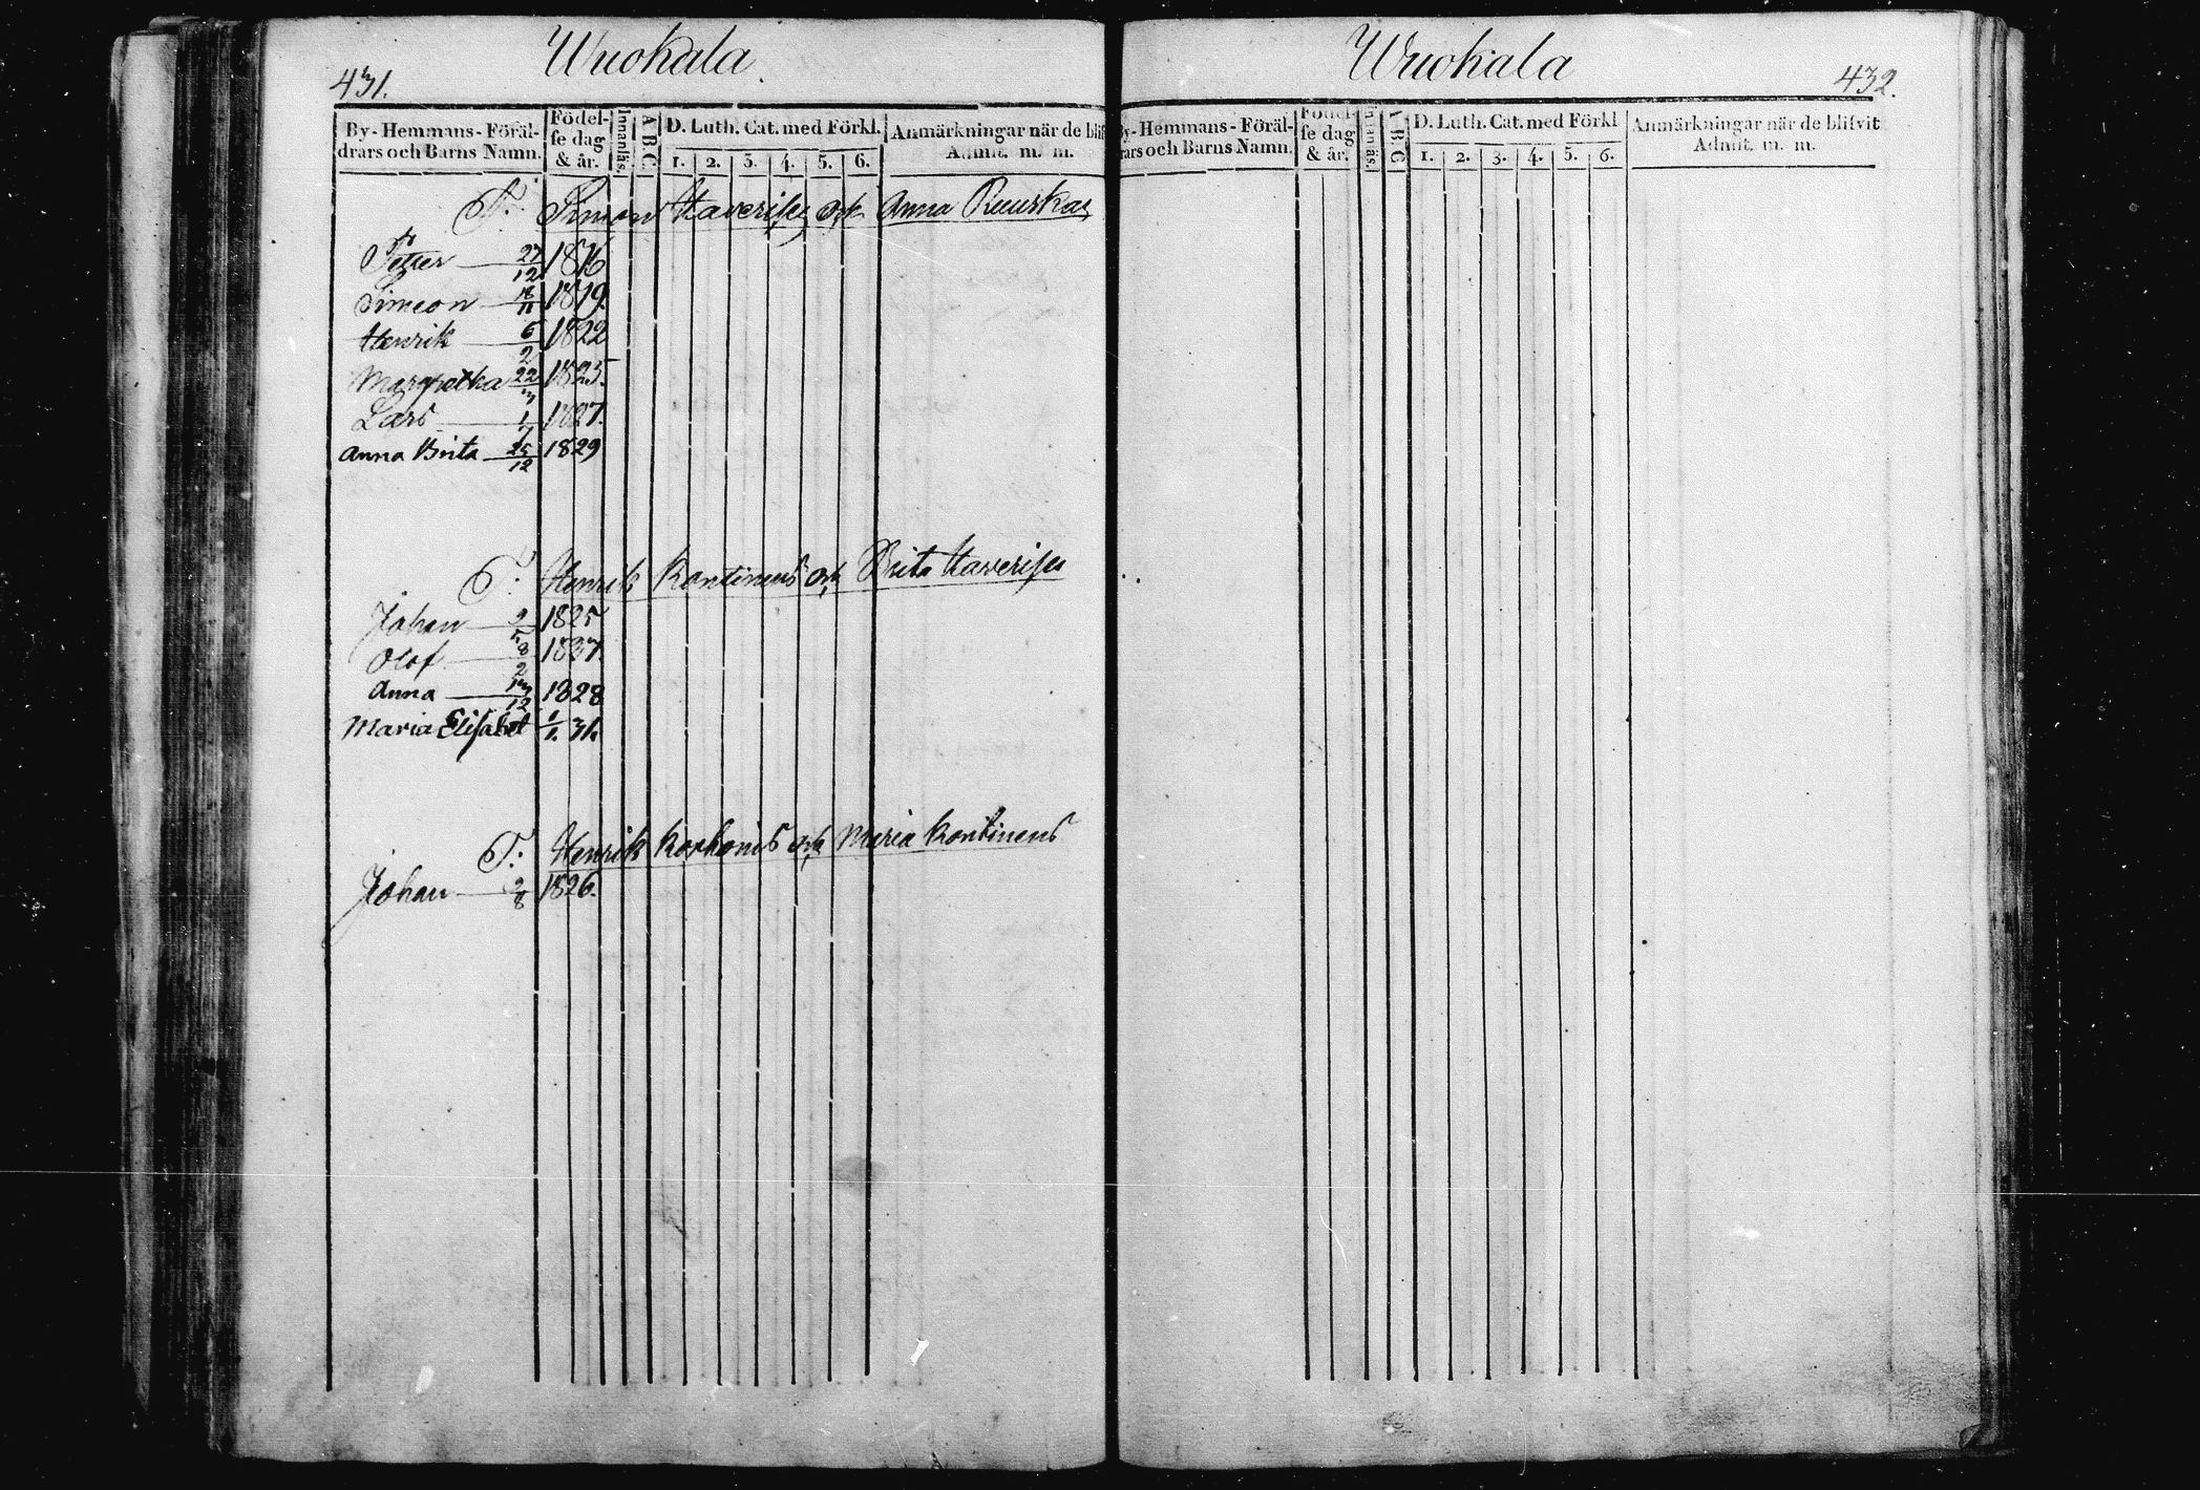 Wuokala.
431.
By-Hemmans-Föräl-
drars och Barns Namn.
Födel-
se dag
& år.
Innanläs.
A B C
D. Luth. Cat. med Förkl.
1. 2. 3. 4. 5. 6.
Anmärkningar när de blif
Admit. m. m.
T. Simon Kaverises och Anna Ruuskas
Petter 27/12 1816
Simeon 18/11 1819.
Henrik 6/2 1822
Margretha 22/3 1825.
Lars 1/7 1827.
Anna Brita 25/12 1829
T: Henrik Kontinens och Brita Kaverises
Johan 2/5 1825
Olof 8/2 1827.
Anna 13/12 1828
Maria Elisabet 1/1. 31.
T: Henrik Korhonens och Maria Kontinens
Johan 2/8 1826.
Wuokala
432.
By-Hemmans-Föräl-
rars och Barns Namn.
Födel-
se dag
& år.
Innanläs.
A B C
D. Luth. Cat. med Förkl
1. 2. 3. 4. 5. 6.
Anmärkningar när de blifvit
Admit. m. m.